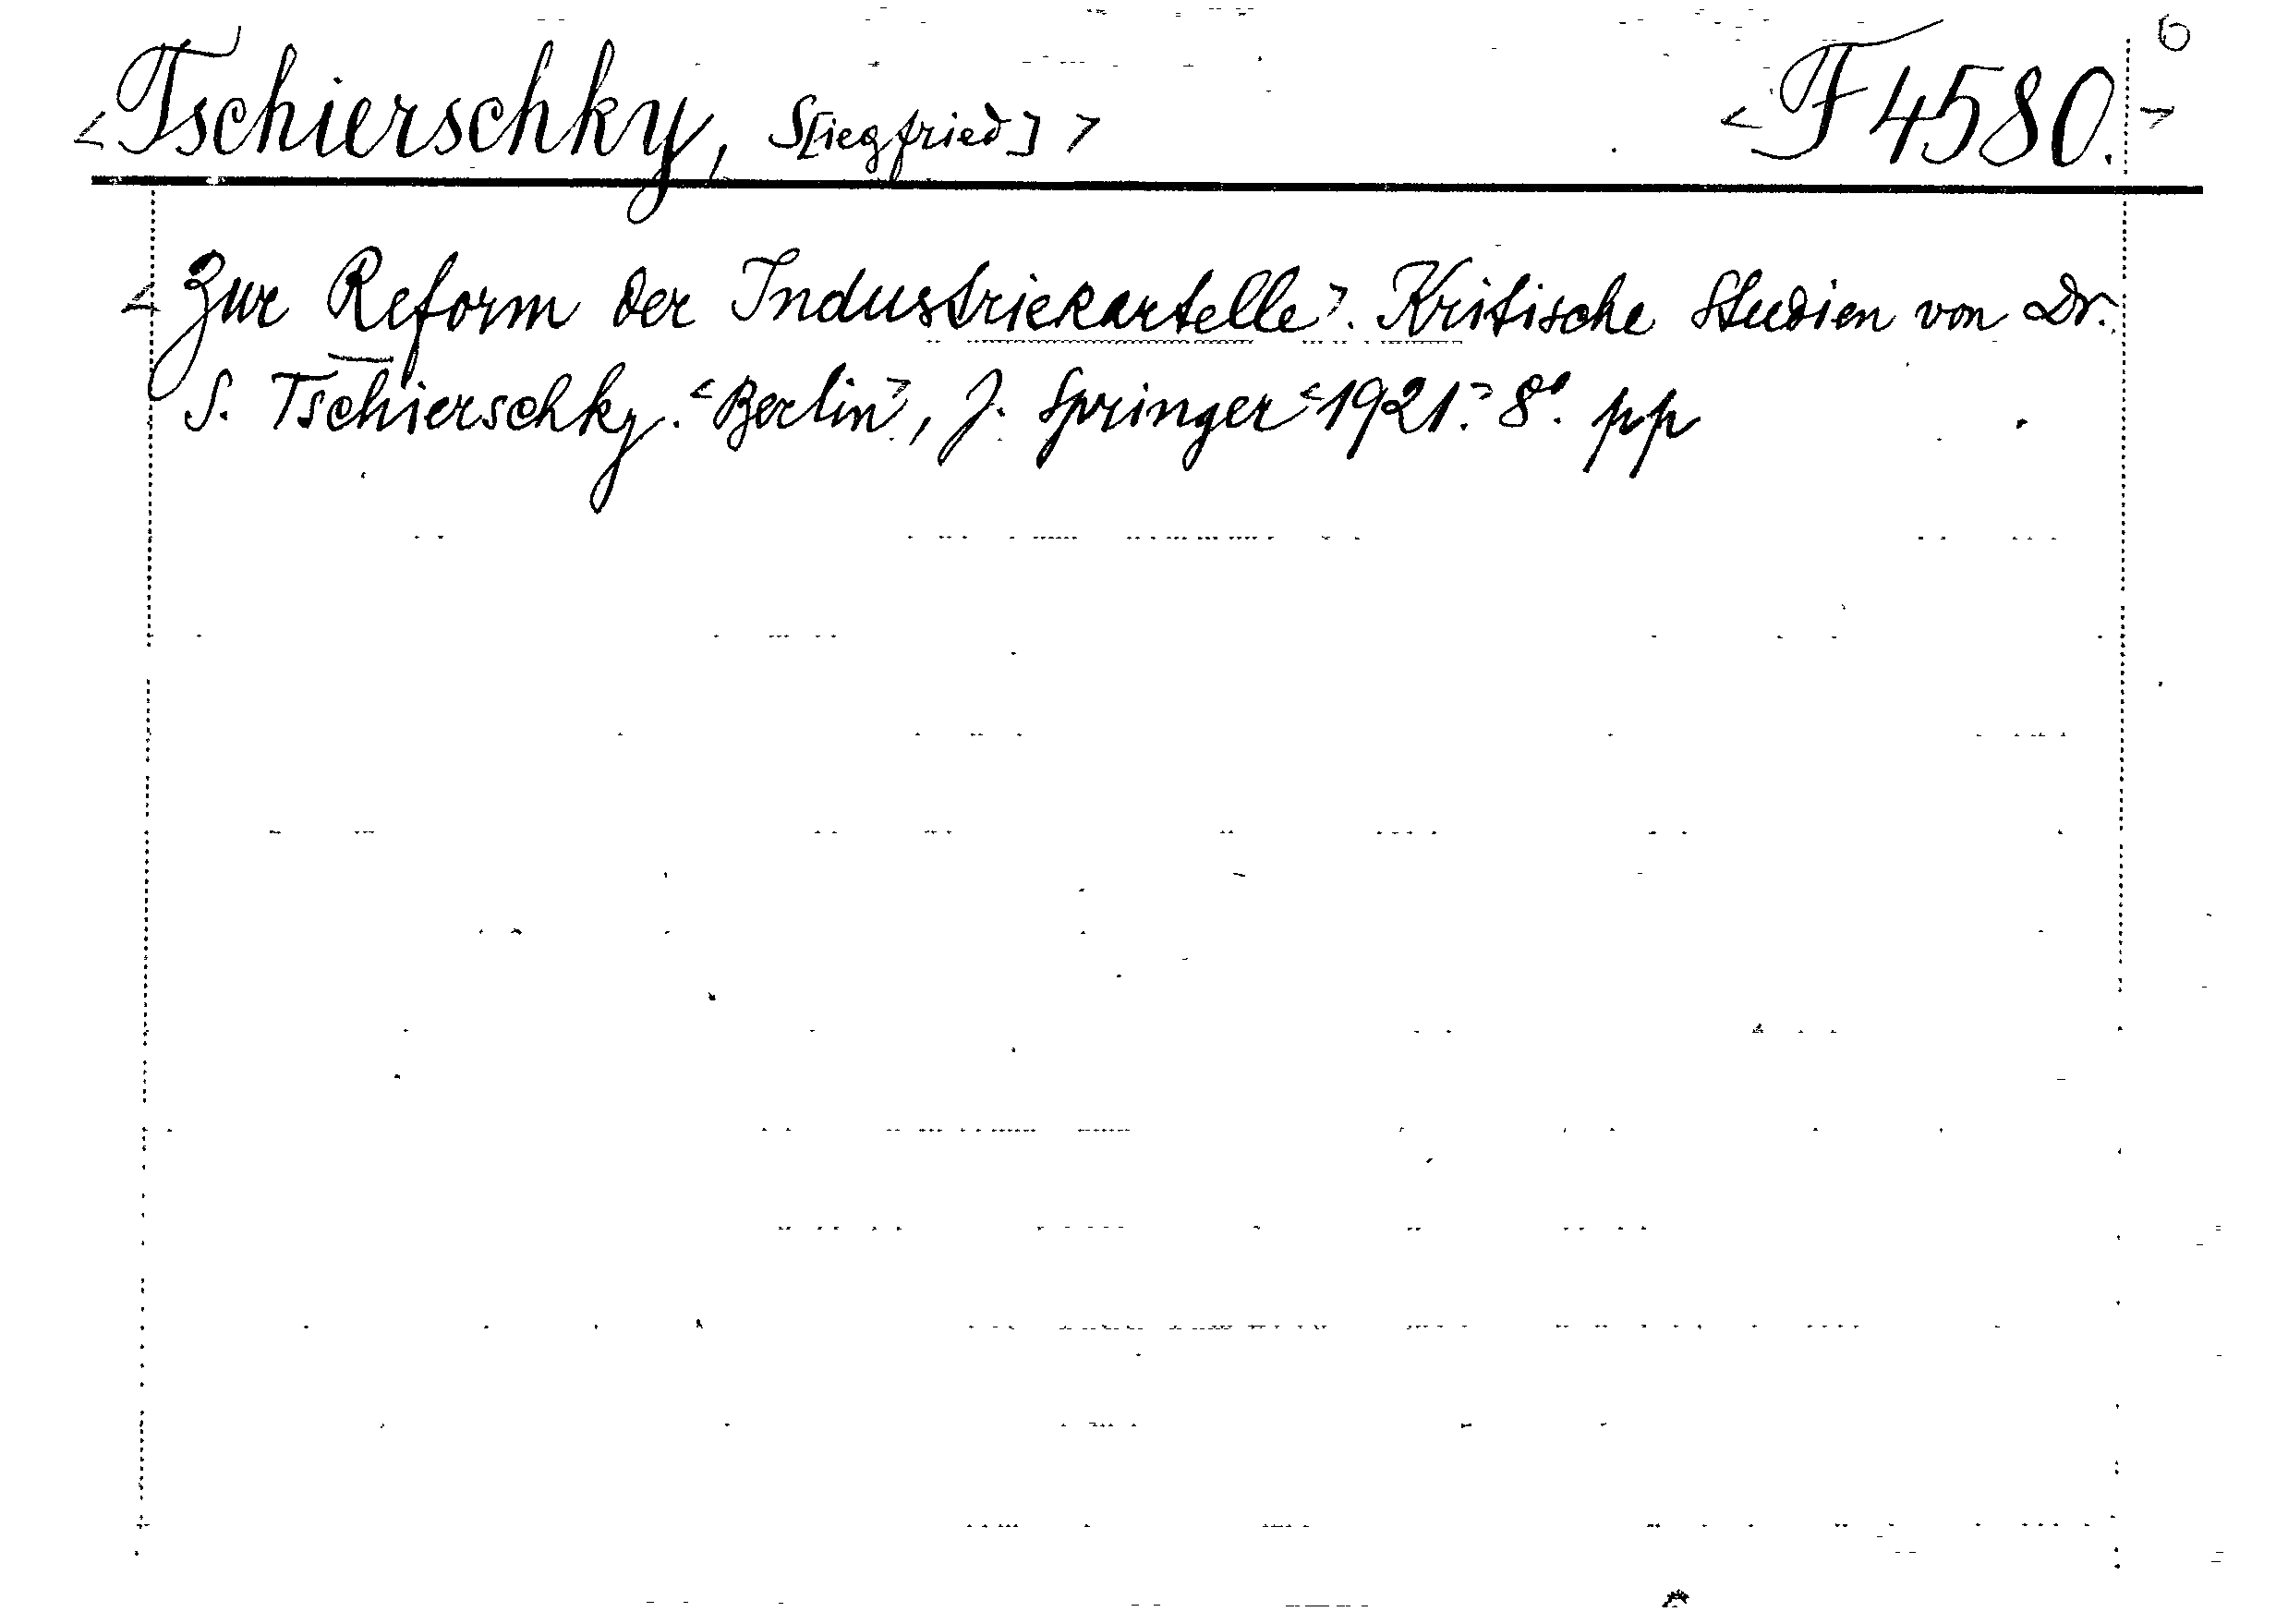 6
<Tschierschky, S[iegfried]> <F 4580.>
<Zur Reform der Industriekartelle>. Kritische Studien von Dr.
S. Tschierschky. <Berlin>, J. Springer <1921.> 8°. pp